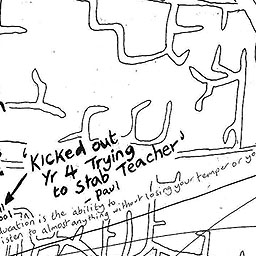 'Kicked out
Yr 4 Trying
to Stab Teacher'
- Paul
education is the ability to
listen to almost anything without losing your temper or yo